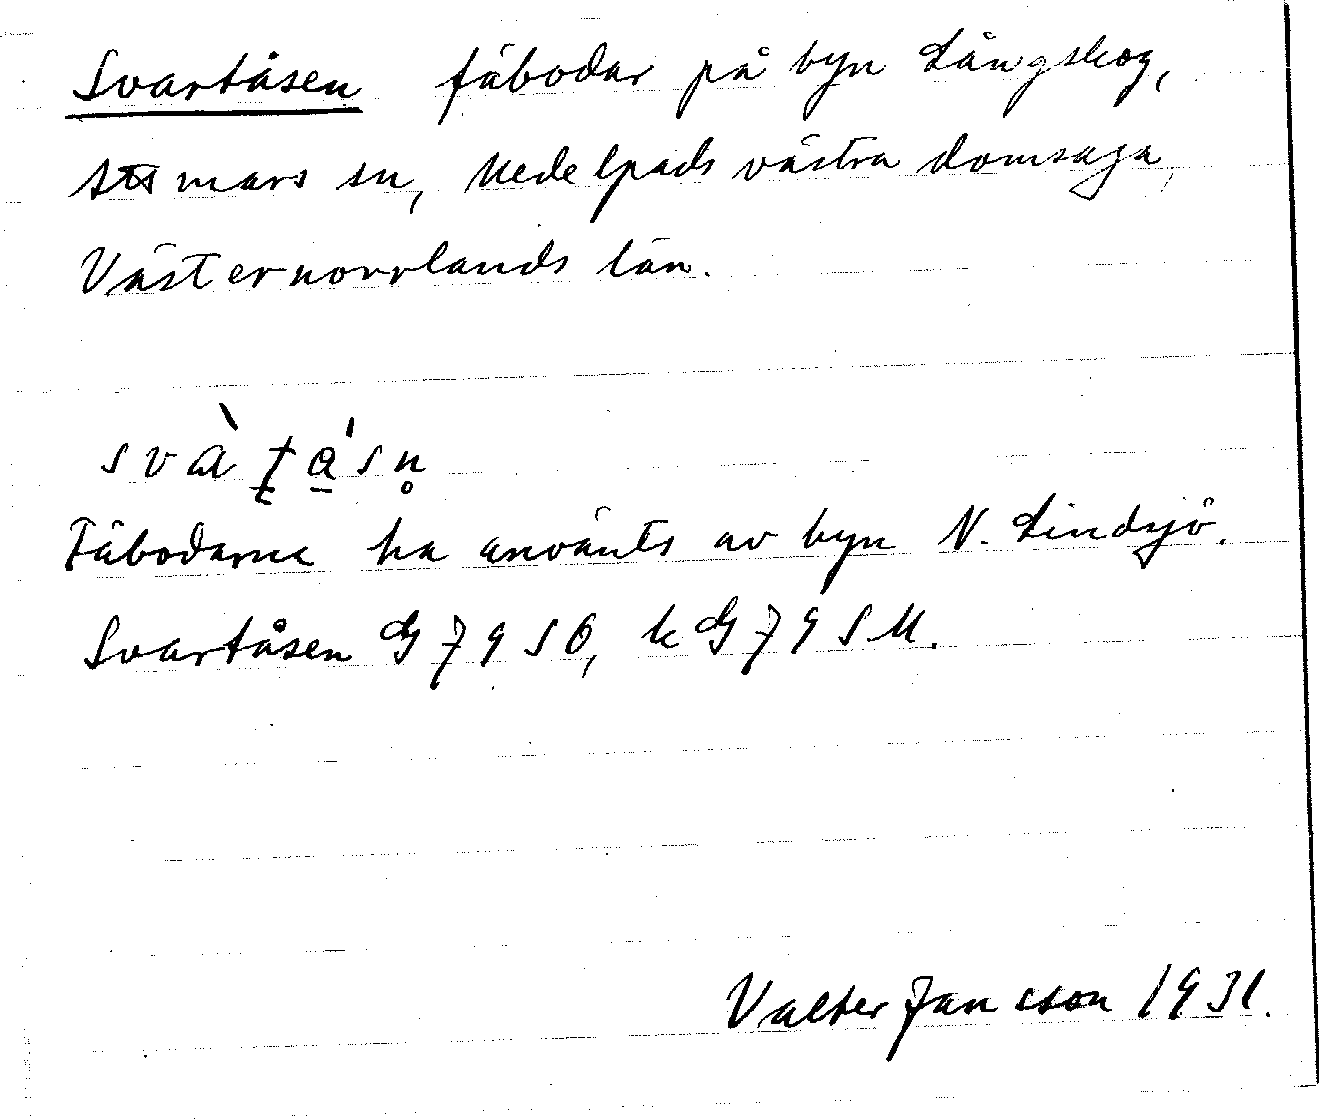 Svartåsen fäbodar på byn Långskog,
Attmars sn, Medelpads västra domsaga,
Västernorrlands län.
Fäbodarna ha använts av byn N. Lindsjö.
Svartåsen G 79 SÖ, k G 79 S M.
Valter Jansson 1931.